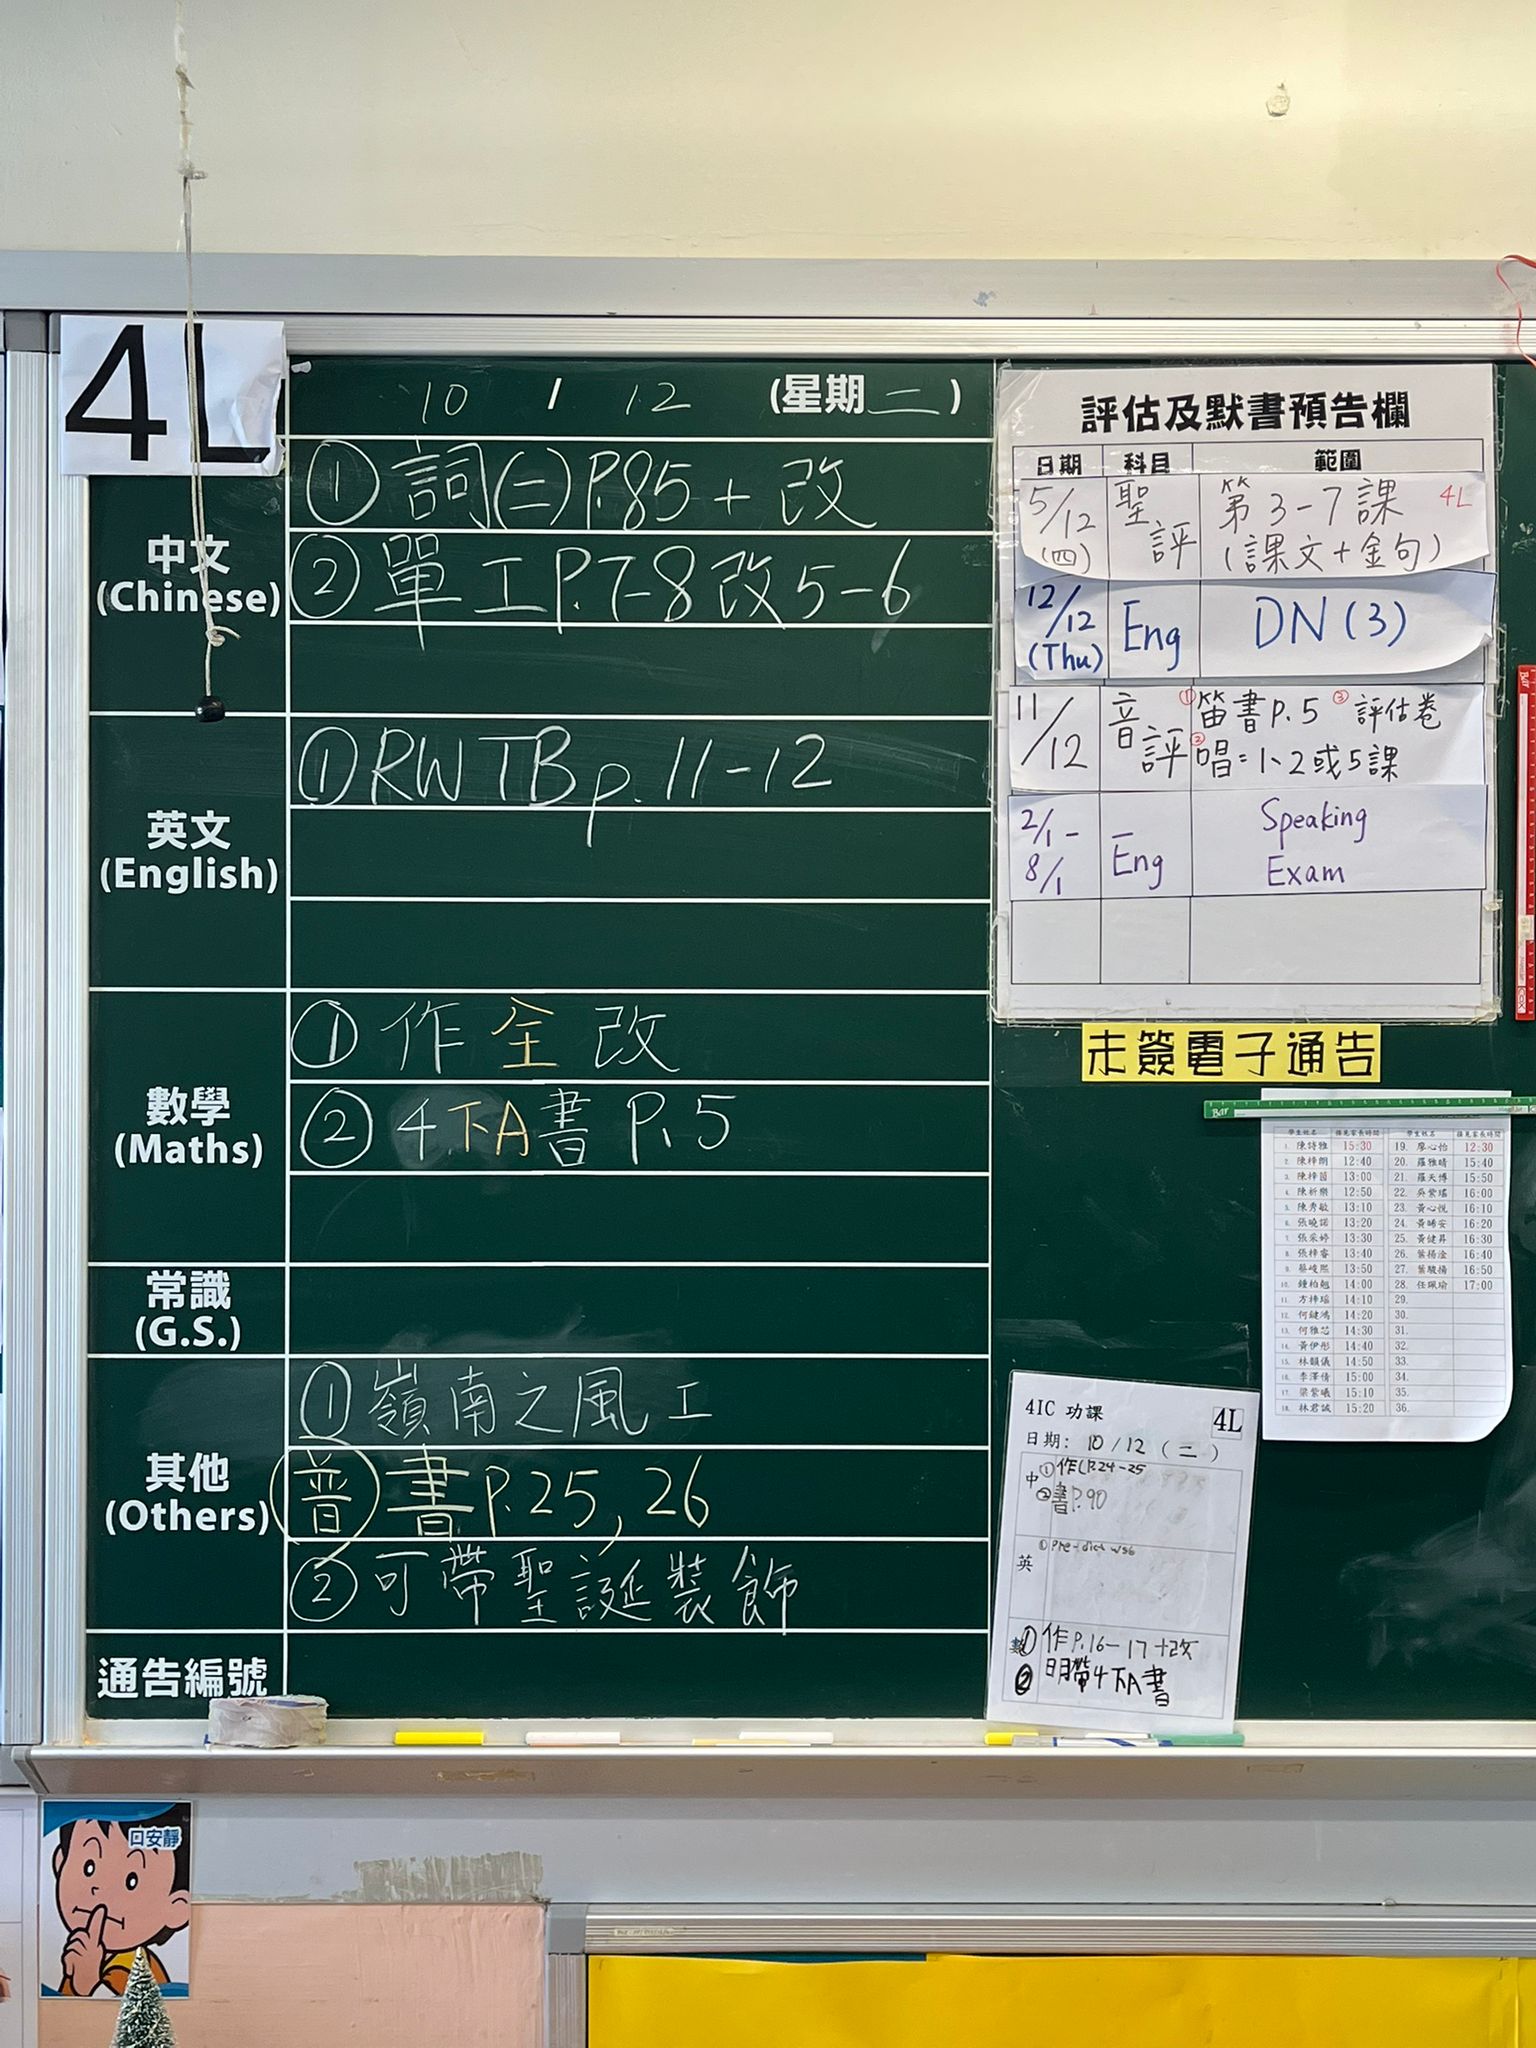 4L
10 / 12 (星期二)
中文
(Chinese)
① 詞(二)P.85 + 改
② 單工P.7-8改5-6
英文
(English)
① RWTB p. 11-12
數學
(Maths)
① 作全改
② 4下A書 P.5
常識
(G.S.)
其他
(Others)
① 嶺南之風工
普 書P.25, 26
② 可帶聖誕裝飾
通告編號
評估及默書預告欄
日期 科目 範圍
5/12 (四) 聖評 第3-7課 4L
(課文+金句)
12/12 (Thu) Eng DN (3)
11/12 音評 ① 笛書P.5 ③ 評估卷
② 唱:1、2或5課
2/1 - 8/1 Eng Speaking
Exam
未簽電子通告
Bar
學生姓名 接見家長時間 學生姓名 接見家長時間
1. 陳詩雅 15:30 19. 廖心怡 12:30
2. 陳梓朗 12:40 20. 羅雅晴 15:40
3. 陳梓茵 13:00 21. 羅天博 15:50
4. 陳析樂 12:50 22. 吳紫瑤 16:00
5. 陳秀敏 13:10 23. 黃心悅 16:10
6. 張曉諾 13:20 24. 黃晞安 16:20
7. 張采婷 13:30 25. 黃健昇 16:30
8. 張梓睿 13:40 26. 葉楊淦 16:40
9. 蔡峻熙 13:50 27. 葉駿揚 16:50
10. 鍾柏勉 14:00 28. 任珮瑜 17:00
11. 方梓瑤 14:10 29.
12. 何鍵鴻 14:20 30.
13. 何雅芯 14:30 31.
14. 黃伊彤 14:40 32.
15. 林韻儀 14:50 33.
16. 李澤倩 15:00 34.
17. 梁紫曦 15:10 35.
18. 林君誠 15:20 36.
4IC 功課 4L
日期: 10/12 (二)
中 ① 作(P.24-25
② 書P.90
英 ① Pre-dict ws6
數 ① 作P.16-17+改
② 明帶4下A書
口安靜